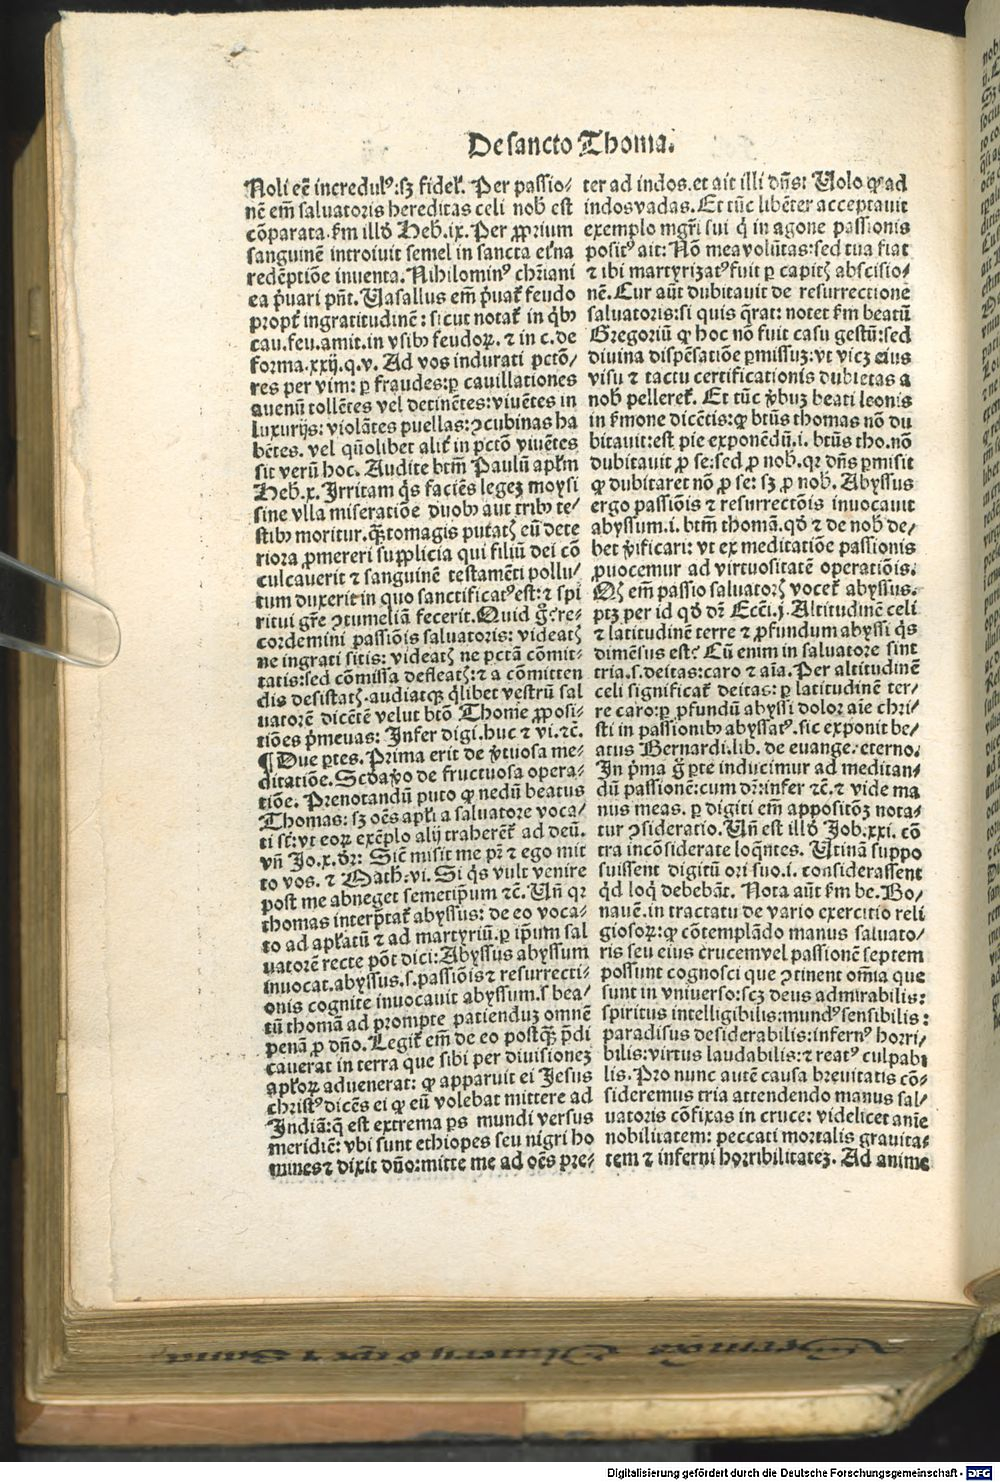 De sancto Thoma.
Noli eē incredulꝰ:sꝫ fidelꝭ. Per passio-
nē em̄ saluatoris hereditas celi nob̄ est
cōparata.km illđ Heb.ix. Per ꝓprium
sanguinē introiuit semel in sancta et̓na
redēptiōe inuenta. Nihilominꝰ chr̄iani
ea p̓uari pn̄t. Uasallus em̄ p̓uat̓ feudo
propt̓ ingratitudinē: sicut notat̓ in q̓bꝰ
cau.feu.amit.in vsibꝰ feudoꝝ. ⁊ in c.de
forma.xxij.q.v. Ad vos indurati pctō/
res per vim: ꝑ fraudes:ꝑ cauillationes
auenū tollētes vel detinētes:viuētes in
luxurijs: violātes puellas:ꝯcubinas ha
bētes. vel qūolibet alit̓ in pctō viuētes
sit verū hoc. Audite btm̄ Paulū apl̄m
Heb.x. Irritam q̓s faciēs legeꝫ moysi
sine vlla miseratiōe duobꝰ aut tribꝰ te/
stibꝰ moritur.q̄ꝫtomagis putatꝭ eū dete
riora ꝓmereri supplicia qui filiū dei cō
culcauerit ⁊ sanguinē testamēti pollu/
tum duxerit in quo sanctificatꝰest:⁊ spi
ritui gr̄e ꝯtumeliā fecerit. Quid g̊:re-
cordemini passiōis saluatoris: videatꝭ
ne ingrati sitis: videatꝭ ne pctā cōmit-
tatis:sed cōmissa defleatꝭ:⁊ a cōmitten
dis desistatꝭ.audiatqꝫ q̓libet vestrū sal
uatorē dicētē velut btō Thome ꝓposi-
tiōes p̓meuas: Infer digi.huc ⁊ vi.⁊c̄.
¶ Due ꝑtes. Prima erit de v̓tuosa me-
ditatiōe. Scđa v̓o de fructuosa opera-
tiōe. Prenotandū puto ꝙ nedū beatus
Thomas: sꝫ oēs apl̓i a saluatore voca-
ti st̄:vt eoꝝ exēplo alij traherēt̓ ad deū.
vn̄ Jo.x.đr: Sic̄ misit me pr̄ ⁊ ego mit
to vos. ⁊ Math.vi. Si q̓s vult venire
post me abneget semetip̄um ⁊c̄. Un̄ qr
thomas interp̄tat̓ abyssus: de eo voca-
to ad apl̓atū ⁊ ad martyriū.ꝑ ip̄um sal
uatorē recte pōt dici:Abyssus abyssum
inuocat.abyssus.s.passiōis⁊ resurrecti-
onis cognite inuocauit abyssum.s bea-
tū thomā ad prompte patienduꝫ omnē
penā ꝓ dn̄o. Legit̓ em̄ de eo postq̄ꝫ p̄di
cauerat in terra que sibi per diuisioneꝫ
apl̓oꝝ aduenerat: ꝙ apparuit ei Jesus
christꝰ dicēs ei ꝙ eū volebat mittere ad
Indiā:q̄ est extrema ꝑs mundi versus
meridiē: vbi sunt ethiopes seu nigri ho
mines⁊ dixit dn̄o:mitte me ad oēs pre/
ter ad indos.et ait illi dn̄s: Uolo ꝙ ad
indos vadas. Et tūc libēter acceptauit
exemplo mgr̄i sui q̓ in agone passionis
positꝰ ait: Nō mea volūtas:sed tua fiat
⁊ ibi martyrizatꝰfuit ꝑ capitꝭ abscisio/
nē. Cur aūt dubitauit de resurrectionē
saluatoris:si quis q̄rat: notet km beatū
Gregoriū ꝙ hoc nō fuit casu gestū:sed
diuina dispēsatiōe ꝑmissuꝫ:vt vicꝫ eius
visu ⁊ tactu certificationis dubietas a
nob̄ pelleret̓. Et tūc v̓buꝫ beati leonis
in k̓mone dicētis:ꝙ btūs thomas nō du
bitauit:est pie exponēdū.i. btūs tho.nō
dubitauit ꝓ se:sed ꝓ nob̄.qr dn̄s ꝑmisit
ꝙ dubitaret nō ꝓ se: sꝫ ꝓ nob̄. Abyssus
ergo passiōis ⁊ resurrectōis inuocauit
abyssum.i. btm̄ thomā.qđ ⁊ de nob̄ de/
bet v̓ificari: vt ex meditatiōe passionis
ꝓuocemur ad virtuositatē operatiōis.
Qꝫ em̄ passio saluatorꝭ vocet̓ abyssus.
ptꝫ per id qđ dr̄ Ecc̄i.j. Altitudinē celi
⁊ latitudinē terre ⁊ ꝓfundum abyssi q̓s
dimēsus est? Cū enim in saluatore sint
tria.s.deitas:caro ⁊ aīa. Per altitudinē
celi significat̓ deitas: ꝑ latitudinē ter/
re caro:ꝑ ꝓfundū abyssi dolor aīe chri/
sti in passionibꝰ abyssatꝰ.sic exponit be/
atus Bernardi.lib. de euange.eterno.
In p̓ma g̊ ꝑte inducimur ad meditan/
dū passionē:cum dr̄:infer ⁊c̄.⁊ vide ma
nus meas. ꝑ digiti em̄ appositōꝫ nota/
tur ꝯsideratio. Un̄ est illđ Job.xxi. cō
tra incōsiderate loq̄ntes. Utinā suppo
suissent digitū ori suo.i. considerassent
q̓d loq̓ debebāt. Nota aūt km be. Bo/
nauē.in tractatu de vario exercitio reli
giosoꝝ:ꝙ cōtemplādo manus saluato/
ris seu eius crucemvel passionē septem
possunt cognosci que ꝯtinent om̄ia que
sunt in vniuerso:scꝫ deus admirabilis:
spiritus intelligibilis:mundꝰsensibilis:
paradisus desiderabilis:infernꝰ horri/
bilis:virtus laudabilis:⁊ reatꝰ culpabi
lis. Pro nunc autē causa breuitatis cō/
sideremus tria attendendo manus sal/
uatoris cōfixas in cruce: videlicet anīe
nobilitatem: peccati mortalis grauita-
tem ⁊ inferni horribilitateꝫ. Ad anime
Digitalisierung gefördert durch die Deutsche Forschungsgemeinschaft - DFG